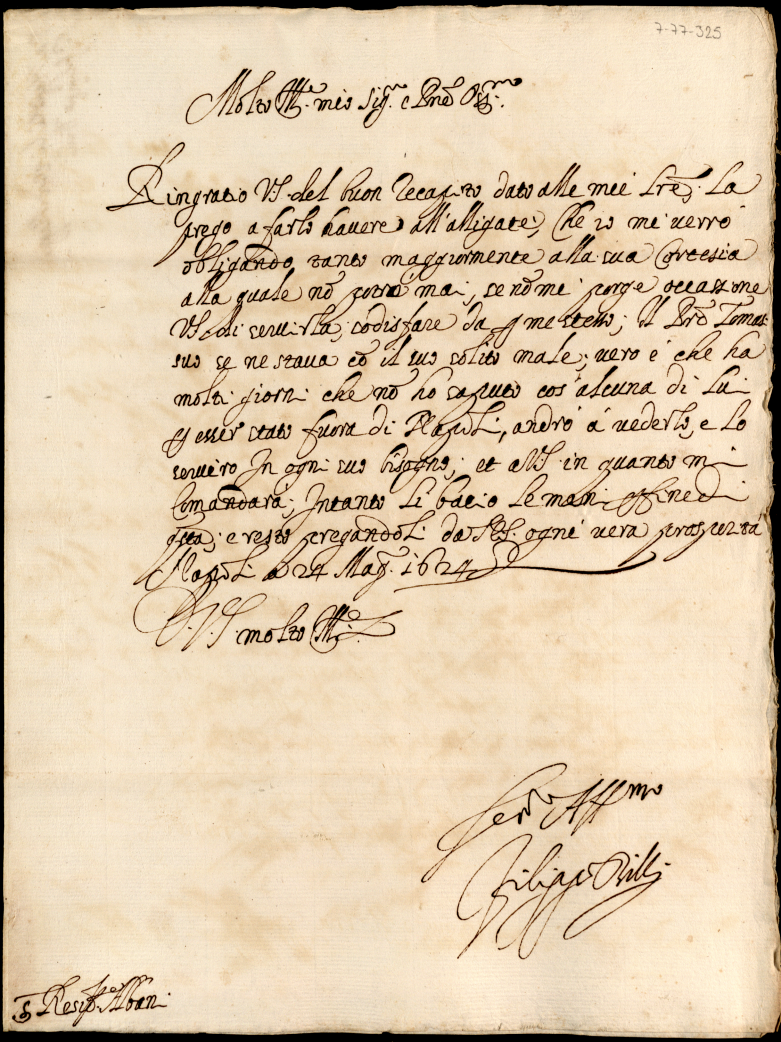 7-77-325
Molto Ill.re mio Sig.r e Prõn Oss.mo
Ringratio V.S. del buon recapito dato alle mie lre,̃ La
prego a farlo havere all'alligate, che io me verrò
obligando tanto maggiormente alla sua Cortesia
alla quale nõ potrò mai, se nõ mi porge occassione
V.S. di servirla, sodisfare da me stesso; Il Prẽ Tomas:
suo se ne stava cõ il suo solito male; vero è che ha
molti giorni che nõ ho saputo cos'alcuna di lui
p esser stato fuora di Napoli, andrò à vederlo, e lo
servirò In ogni suo bisogno; et a V.S. in quanto mi
Comandarà; Intanto li bacio le mani
e resto pregandoli da ogni vera prosperità
Napoli a 24 Mag. 1624
D. V.S. molto Ill.
Ser.r Aff.mo
Filippo
S. Albani